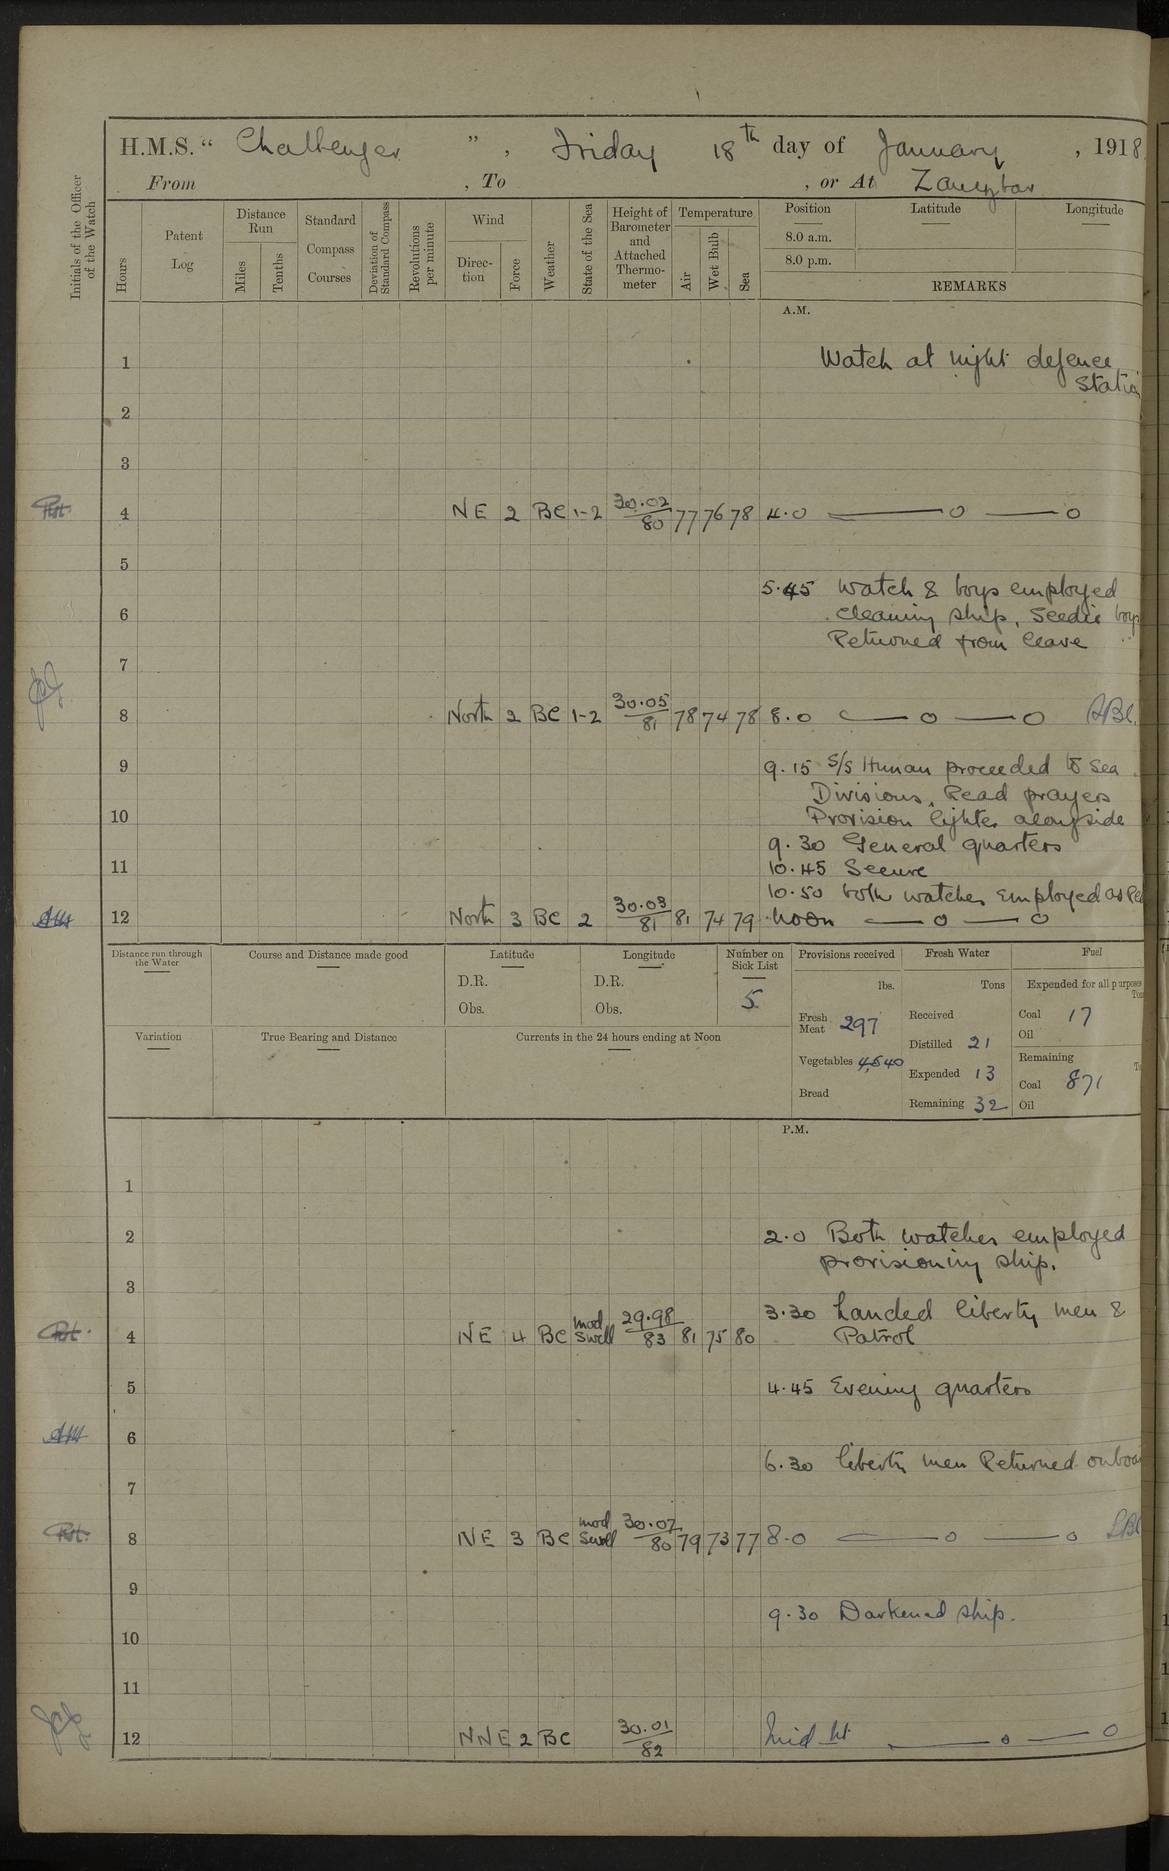 H.M.S. “ Challenger ” , Friday 18th day of January , 1918
From , To , or At Zanzibar
Initials of the Officer of the Watch
Hours
Patent Log
Distance Run
Miles
Tenths
Standard Compass Courses
Deviation of Standard Compass
Revolutions per minute
Wind
Direc-tion
Force
Weather
State of the Sea
Height of Barometer and Attached Thermo-meter
Temperature
Air
Wet Bulb
Sea
Position
8.0 a.m.
8.0 p.m.
Latitude
Longitude
REMARKS
A.M.
1 Watch at night defence
Statio
2
3
4 NE 2 BC 1-2 30.02/80 77 76 78 4.0 —— o —— o
5
5.45 Watch & boys employed
6 cleaning ship, Seedie boys
Returned from leave
7
8 North 2 BC 1-2 30.05/81 78 74 78 8.0 —— o —— o
9 9.15 S/S Hunan proceeded to sea
Divisions, Read prayers
10 Provision lighter alongside
9.30 General quarters
11 10.45 Secure
10.50 both watches employed as
12 North 3 BC 2 30.03/81 81 74 79 Noon —— o —— o
Distance run through the Water
Course and Distance made good
Latitude
D.R.
Obs.
Longitude
D.R.
Obs.
Number on Sick List
5
Provisions received
lbs.
Fresh Meat 297
Vegetables
Bread
Fresh Water
Tons
Received
Distilled 21
Expended 13
Remaining 32
Fuel
Expended for all purposes
Coal 17
Oil
Remaining
Coal 871
Oil
Variation
True Bearing and Distance
Currents in the 24 hours ending at Noon
P.M.
1
2 2.0 Both watches employed
provisioning ship.
3
3.30 Landed liberty men &
4 NE 4 BC mod Swell 29.98/83 81 75 80 Patrol
5 4.45 Evening quarters
6
6.30 liberty men Returned onboa
7
8 NE 3 BC mod Swell 30.07/80 79 73 77 8.0 —— o —— o
9
9.30 Darkened ship.
10
11
12 NNE 2 BC 30.01/82 Mid ht —— o —— o